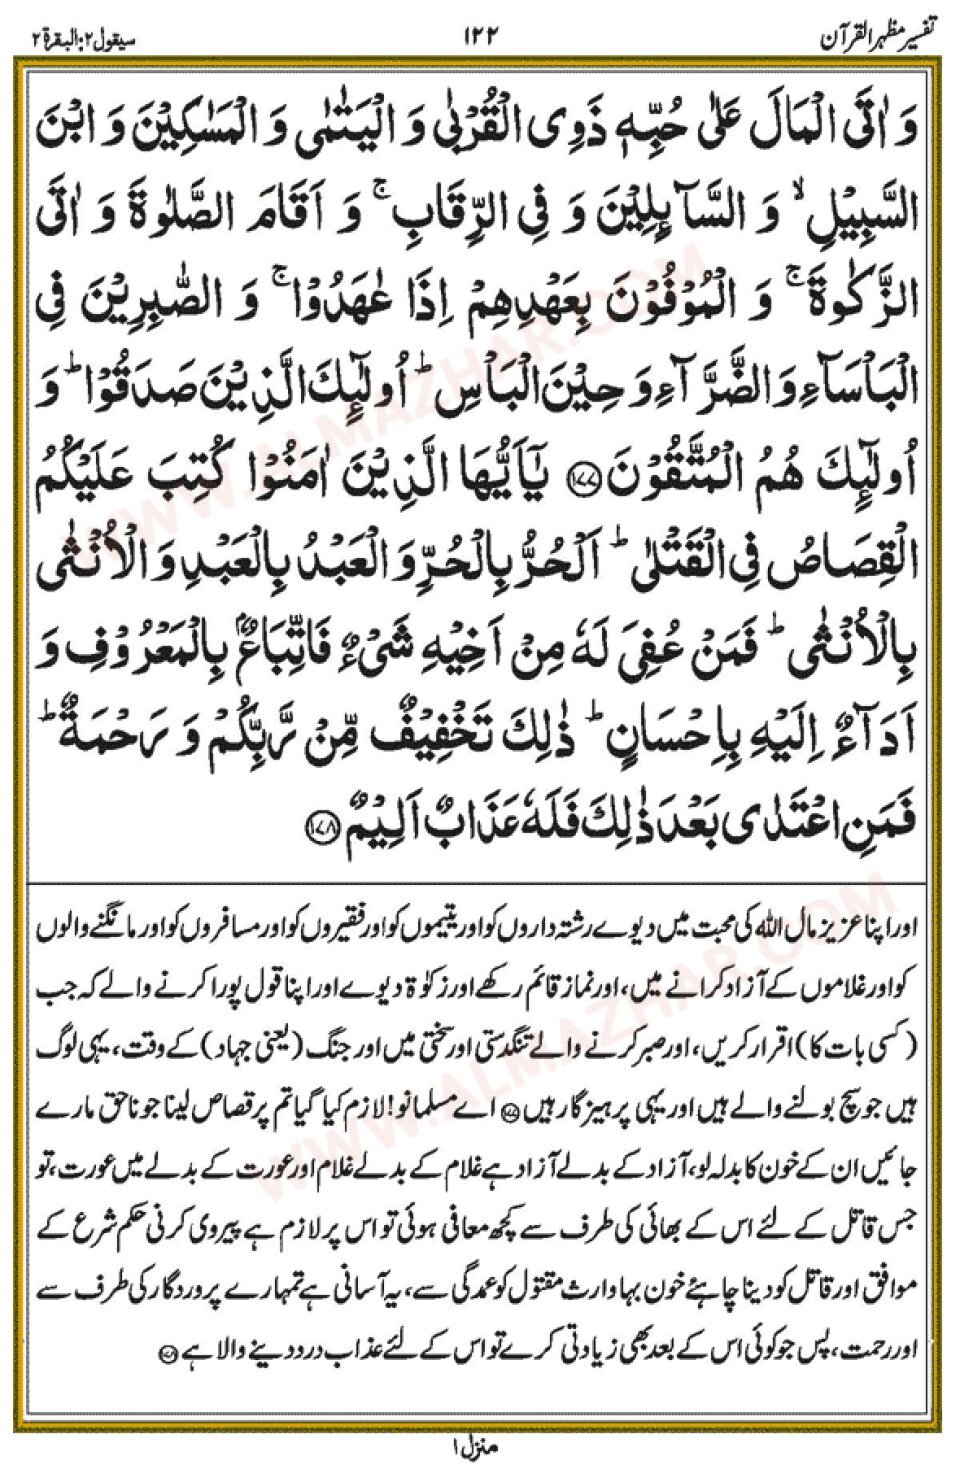 تفسیر مظہر القرآن
۱۲۲
سیقول۲:البقرۃ۲
وَ اٰتَی الْمَالَ عَلٰی حُبِّهٖ ذَوِی الْقُرْبٰی وَ الْیَتٰمٰی وَ الْمَسٰكِیْنَ وَ ابْنَ
السَّبِیْلِ ۙ وَ السَّآىِٕلِیْنَ وَ فِی الرِّقَابِ ۚ وَ اَقَامَ الصَّلٰوةَ وَ اٰتَی
الزَّكٰوةَ ۚ وَ الْمُوْفُوْنَ بِعَهْدِهِمْ اِذَا عٰهَدُوْا ۚ وَ الصّٰبِرِیْنَ فِی
الْبَاْسَآءِ وَ الضَّرَّآءِ وَ حِیْنَ الْبَاْسِ ؕ اُولٰٓىِٕكَ الَّذِیْنَ صَدَقُوْا ؕ وَ
اُولٰٓىِٕكَ هُمُ الْمُتَّقُوْنَ ﴿۱۷۷﴾ یٰۤاَیُّهَا الَّذِیْنَ اٰمَنُوْا كُتِبَ عَلَیْكُمُ
الْقِصَاصُ فِی الْقَتْلٰی ؕ اَلْحُرُّ بِالْحُرِّ وَ الْعَبْدُ بِالْعَبْدِ وَ الْاُنْثٰی
بِالْاُنْثٰی ؕ فَمَنْ عُفِیَ لَهٗ مِنْ اَخِیْهِ شَیْءٌ فَاتِّبَاعٌۢ بِالْمَعْرُوْفِ وَ
اَدَآءٌ اِلَیْهِ بِاِحْسَانٍ ؕ ذٰلِكَ تَخْفِیْفٌ مِّنْ رَّبِّكُمْ وَ رَحْمَةٌ ؕ
فَمَنِ اعْتَدٰی بَعْدَ ذٰلِكَ فَلَهٗ عَذَابٌ اَلِیْمٌ ﴿۱۷۸﴾
اور اپنا عزیز مال اللہ کی محبت میں دیوے رشتہ داروں کو اور یتیموں کو اور فقیروں کو اور مسافروں کو اور مانگنے والوں
کو اور غلاموں کے آزاد کرانے میں، اور نماز قائم رکھے اور زکوٰۃ دیوے اور اپنا قول پورا کرنے والے کہ جب
(کسی بات کا) اقرار کریں، اور صبر کرنے والے تنگدستی اور سختی میں اور جنگ (یعنی جہاد) کے وقت، یہی لوگ
ہیں جو سچ بولنے والے ہیں اور یہی پرہیزگار ہیں ﴿۱۷۷﴾ اے مسلمانو! لازم کیا گیا تم پر قصاص لینا جو ناحق مارے
جائیں ان کے خون کا بدلہ لو، آزاد کے بدلے آزاد ہے غلام کے بدلے غلام اور عورت کے بدلے میں عورت، تو
جس قاتل کے لئے اس کے بھائی کی طرف سے کچھ معافی ہوئی تو اس پر لازم ہے پیروی کرنی حکم شرع کے
موافق اور قاتل کو دینا چاہئے خون بہا وارث مقتول کو عمدگی سے، یہ آسانی ہے تمہارے پروردگار کی طرف سے
اور رحمت، پس جو کوئی اس کے بعد بھی زیادتی کرے تو اس کے لئے عذاب درد دینے والا ہے ﴿۱۷۸﴾
منزل۱
WWW.ALMAZHAR.COM
WWW.ALMAZHAR.COM